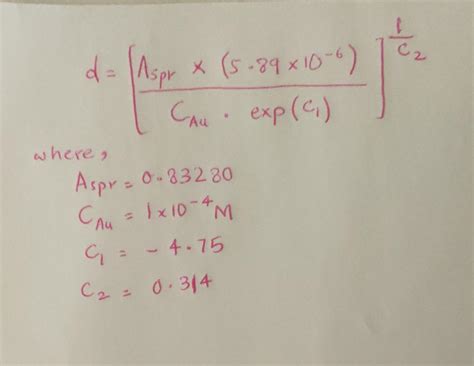 d = [ Aspr × (5.89×10⁻⁶) / C_Au · exp(C₁) ]^(1/C₂)
where,
Aspr = 0.83280
C_Au = 1×10⁻⁴ M
C₁ = - 4.75
C₂ = 0.314